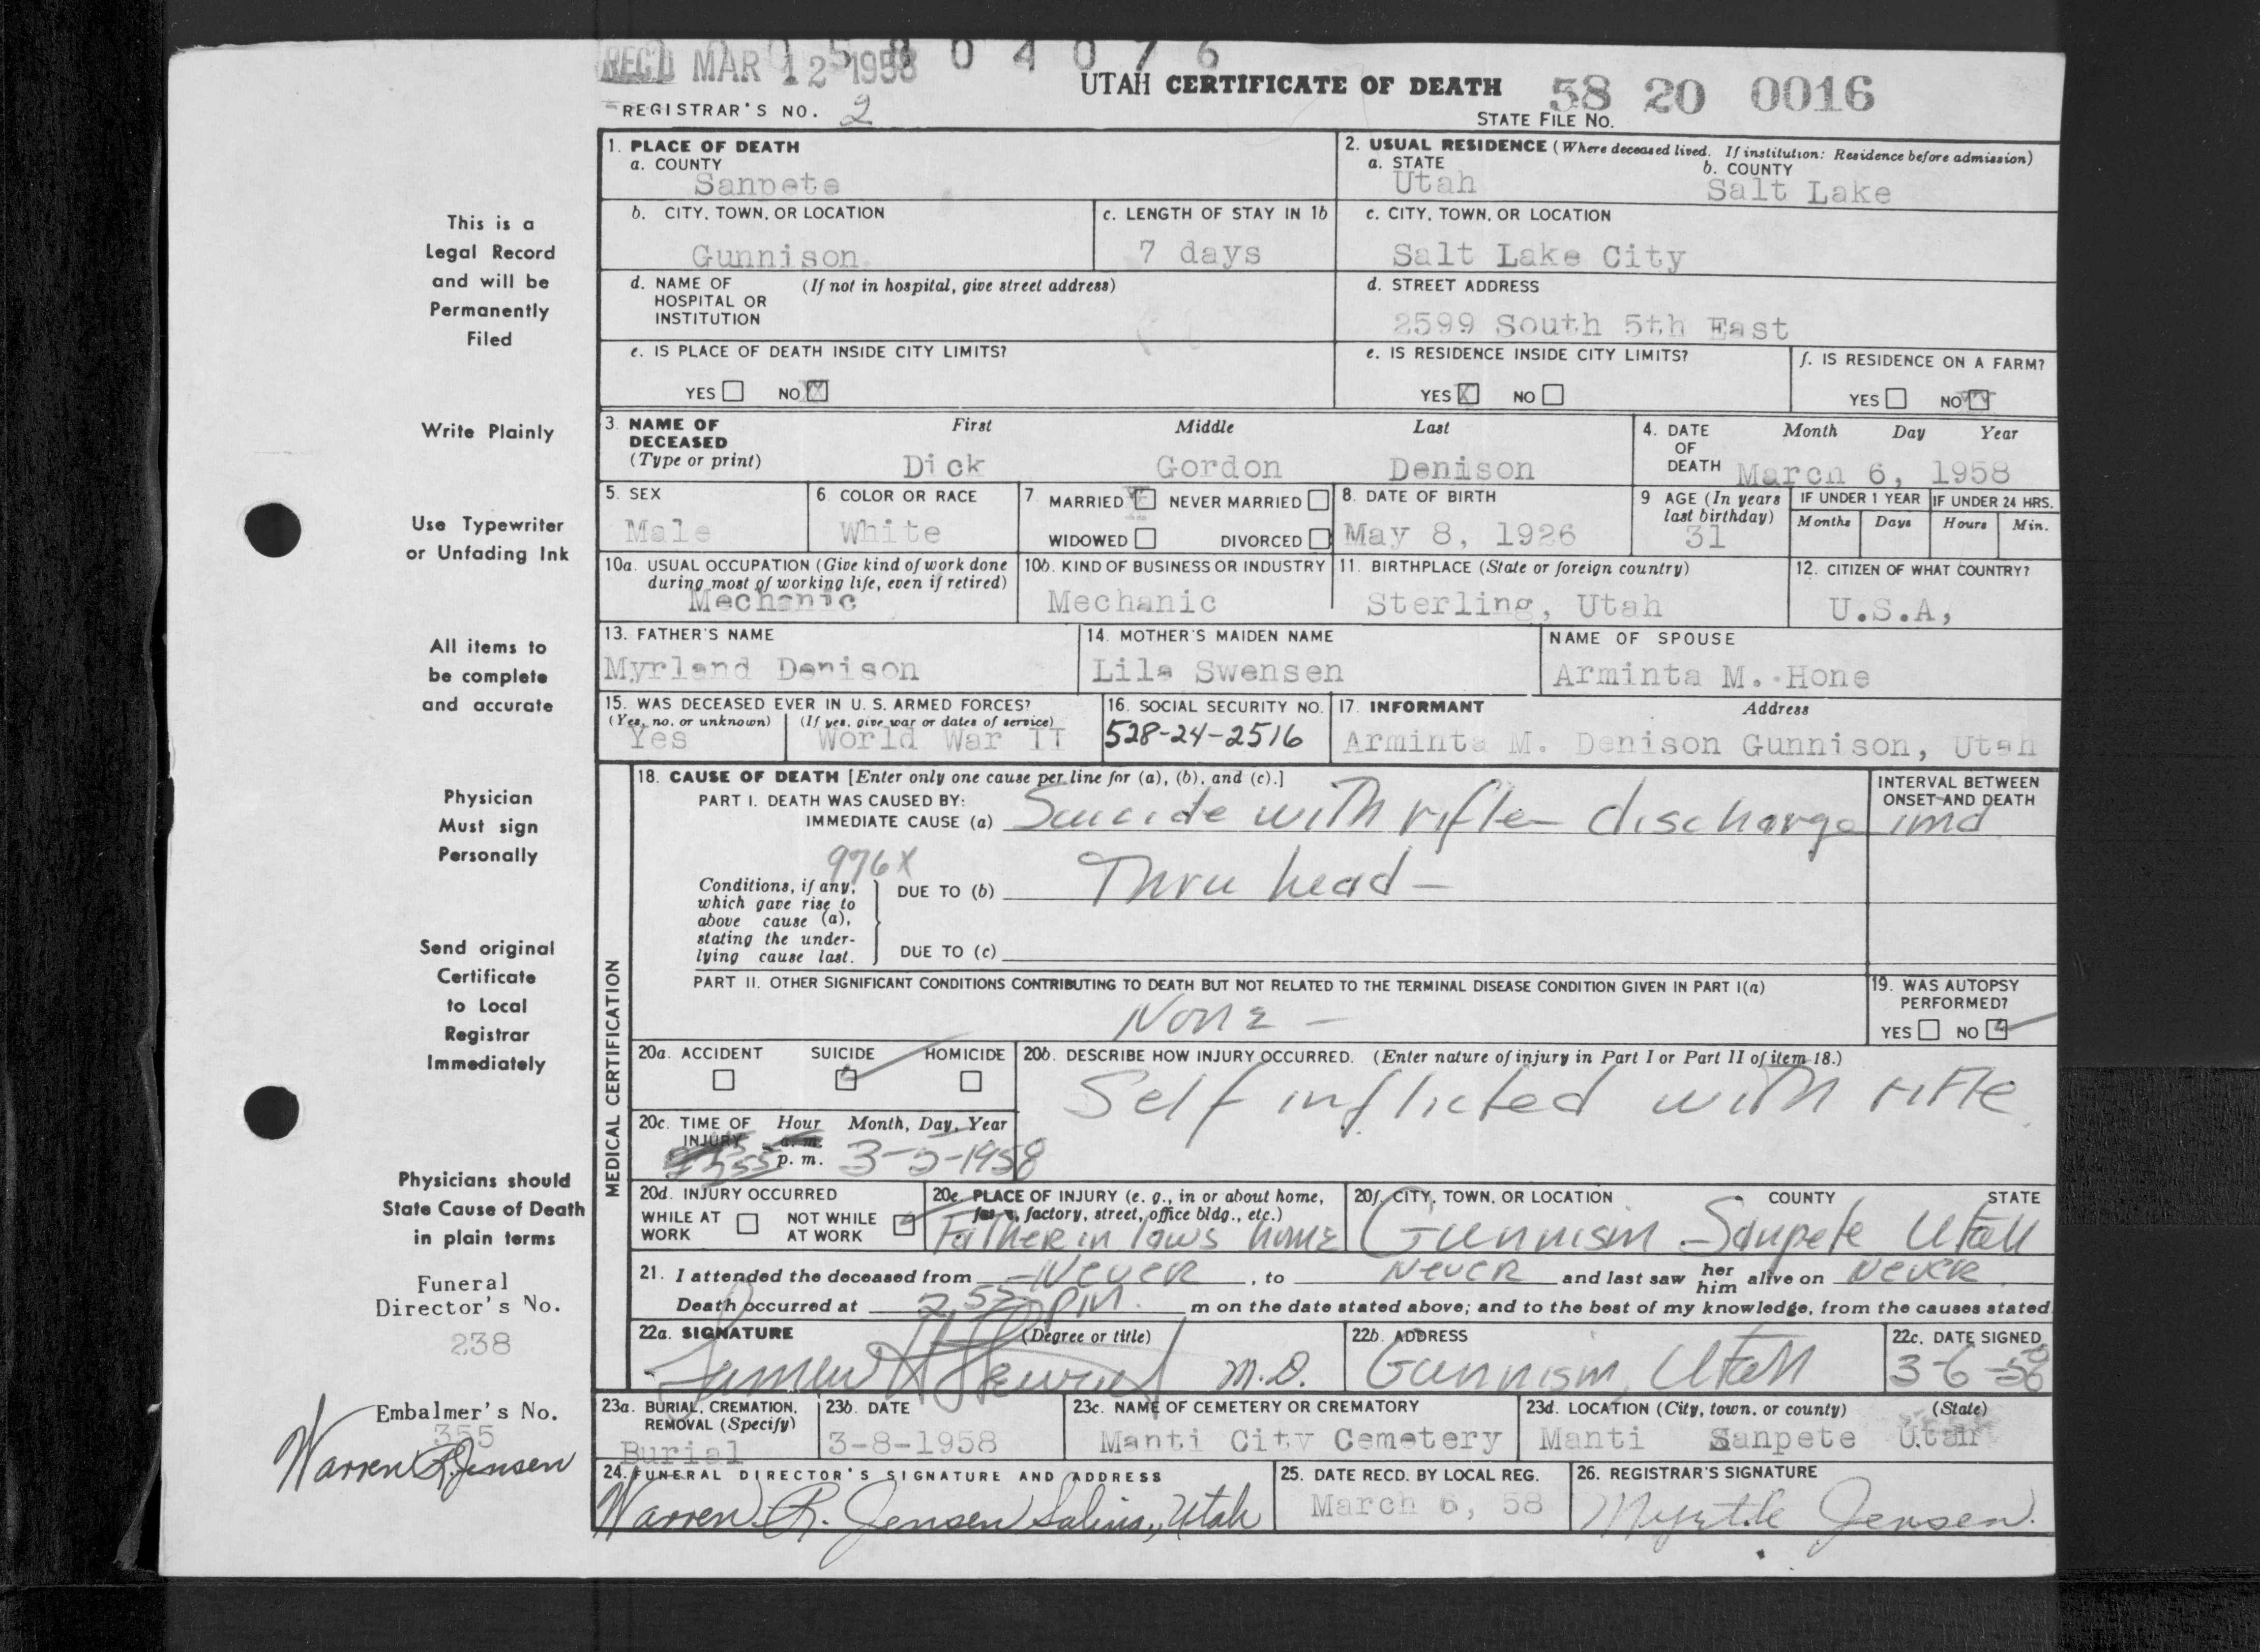 REC'D MAR 12 1958 0 4 0 7 6
UTAH CERTIFICATE OF DEATH 58 20 0016
REGISTRAR'S NO. 2
STATE FILE NO.
This is a
Legal Record
and will be
Permanently
Filed
Write Plainly
Use Typewriter
or Unfading Ink
All items to
be complete
and accurate
Physician
Must sign
Personally
Send original
Certificate
to Local
Registrar
Immediately
Physicians should
State Cause of Death
in plain terms
Funeral
Director's No.
238
Embalmer's No.
355
Warren R. Jensen
1. PLACE OF DEATH
a. COUNTY
Sanpete
2. USUAL RESIDENCE (Where deceased lived. If institution: Residence before admission)
a. STATE b. COUNTY
Utah Salt Lake
b. CITY, TOWN, OR LOCATION c. LENGTH OF STAY IN 1b c. CITY, TOWN, OR LOCATION
Gunnison 7 days Salt Lake City
d. NAME OF (If not in hospital, give street address)
HOSPITAL OR
INSTITUTION
d. STREET ADDRESS
2599 South 5th East
e. IS PLACE OF DEATH INSIDE CITY LIMITS?
YES NO X
e. IS RESIDENCE INSIDE CITY LIMITS?
YES X NO
f. IS RESIDENCE ON A FARM?
YES NO X
3. NAME OF DECEASED (Type or print) First Middle Last
Dick Gordon Denison
4. DATE OF DEATH Month Day Year
March 6, 1958
5. SEX
Male
6. COLOR OR RACE
White
7. MARRIED X NEVER MARRIED
WIDOWED DIVORCED
8. DATE OF BIRTH
May 8, 1926
9 AGE (In years last birthday)
31
IF UNDER 1 YEAR IF UNDER 24 HRS.
Months Days Hours Min.
10a. USUAL OCCUPATION (Give kind of work done
during most of working life, even if retired)
Mechanic
10b. KIND OF BUSINESS OR INDUSTRY
Mechanic
11. BIRTHPLACE (State or foreign country)
Sterling, Utah
12. CITIZEN OF WHAT COUNTRY?
U.S.A,
13. FATHER'S NAME
Myrland Denison
14. MOTHER'S MAIDEN NAME
Lila Swensen
NAME OF SPOUSE
Arminta M. Hone
15. WAS DECEASED EVER IN U. S. ARMED FORCES?
(Yes, no, or unknown) (If yes, give war or dates of service)
Yes World War II
16. SOCIAL SECURITY NO.
528-24-2516
17. INFORMANT Address
Arminta M. Denison Gunnison, Utah
MEDICAL CERTIFICATION
18. CAUSE OF DEATH [Enter only one cause per line for (a), (b), and (c).]
INTERVAL BETWEEN
ONSET AND DEATH
PART I. DEATH WAS CAUSED BY:
IMMEDIATE CAUSE (a) Suicide with rifle discharge imd
976X
Conditions, if any,
which gave rise to
above cause (a),
stating the under-
lying cause last.
DUE TO (b) Thru head -
DUE TO (c)
PART II. OTHER SIGNIFICANT CONDITIONS CONTRIBUTING TO DEATH BUT NOT RELATED TO THE TERMINAL DISEASE CONDITION GIVEN IN PART I(a)
None -
19. WAS AUTOPSY
PERFORMED?
YES NO
20a. ACCIDENT SUICIDE HOMICIDE
20b. DESCRIBE HOW INJURY OCCURRED. (Enter nature of injury in Part I or Part II of item 18.)
Self inflicted with rifle
20c. TIME OF INJURY Hour Month, Day, Year
a. m.
p. m.
20d. INJURY OCCURRED
WHILE AT WORK NOT WHILE AT WORK
20e. PLACE OF INJURY (e. g., in or about home,
farm, factory, street, office bldg., etc.)
Father in laws home
20f. CITY, TOWN, OR LOCATION COUNTY STATE
Gunnison Sanpete Utah
21. I attended the deceased from Never, to Never and last saw her him alive on Never
Death occurred at 2,55 pm. m on the date stated above; and to the best of my knowledge, from the causes stated
22a. SIGNATURE (Degree or title)
M.D.
22b. ADDRESS
Gunnison, Utah
22c. DATE SIGNED
3-6-58
23a. BURIAL, CREMATION,
REMOVAL (Specify)
Burial
23b. DATE
3-8-1958
23c. NAME OF CEMETERY OR CREMATORY
Manti City Cemetery
23d. LOCATION (City, town, or county) (State)
Manti Sanpete Utah
24. FUNERAL DIRECTOR'S SIGNATURE AND ADDRESS
Warren R. Jensen Salina, Utah
25. DATE RECD. BY LOCAL REG.
March 6, 58
26. REGISTRAR'S SIGNATURE
Myrtle Jensen.